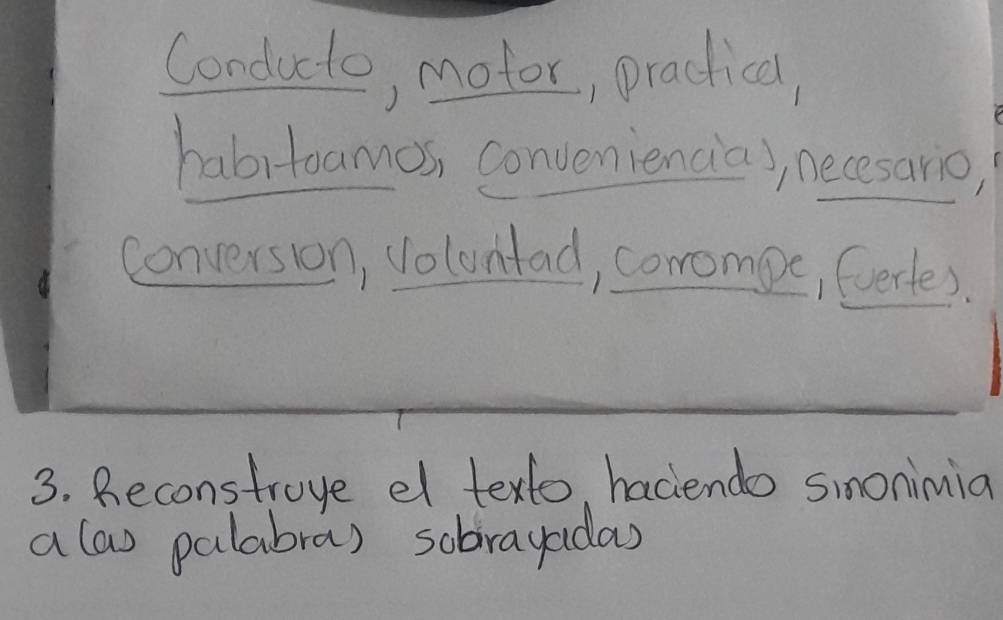 Conducto, motor, practica,
habituamos, conveniencias, necesario,
conversion, voluntad, corrompe, fuertes.
3. Reconstruye el texto, haciendo sinonimia
a las palabras sobrayadas